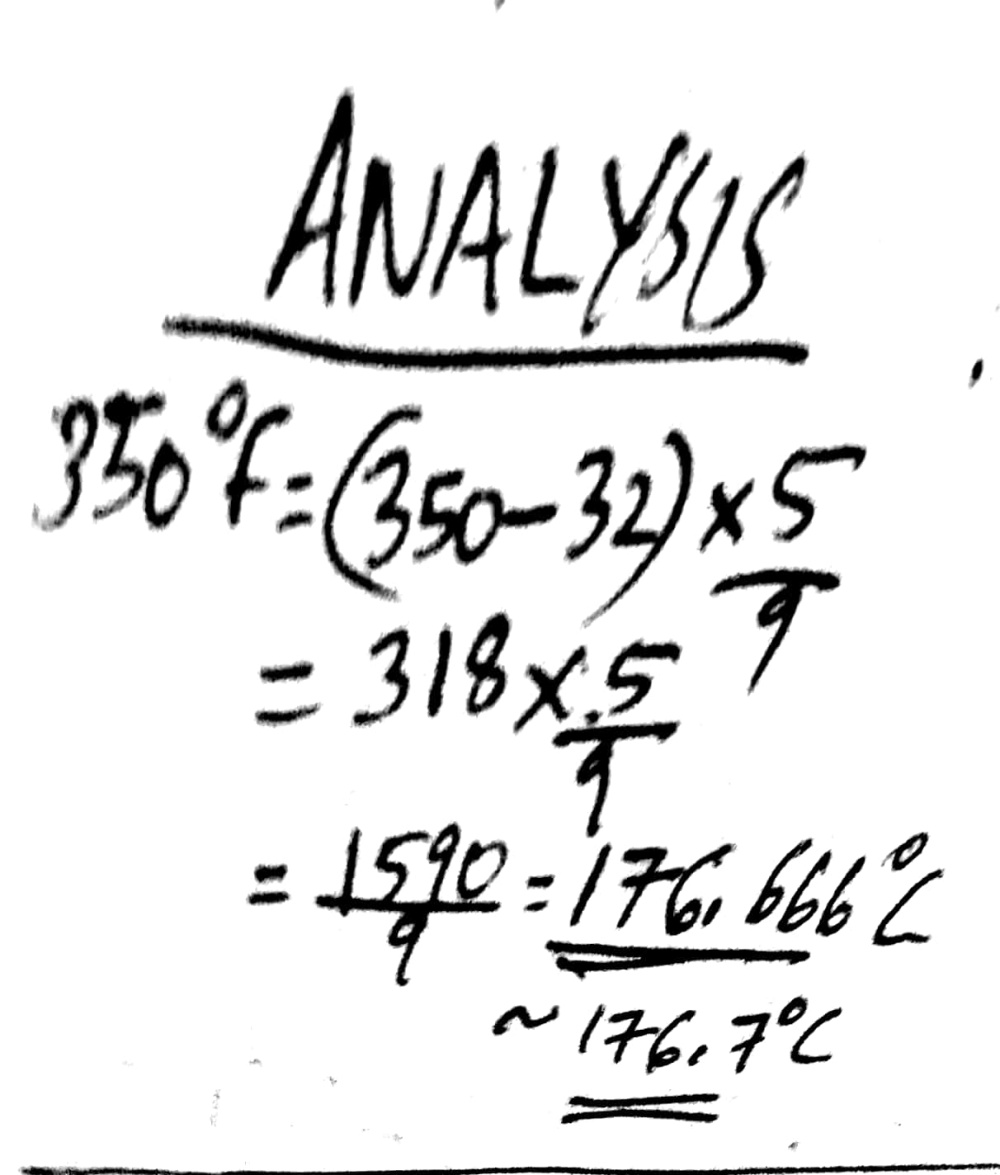 ANALYSIS
350°F = (350-32) × 5/9
= 318 × 5/9
= 1590/9 = 176.666°C
~ 176.7°C